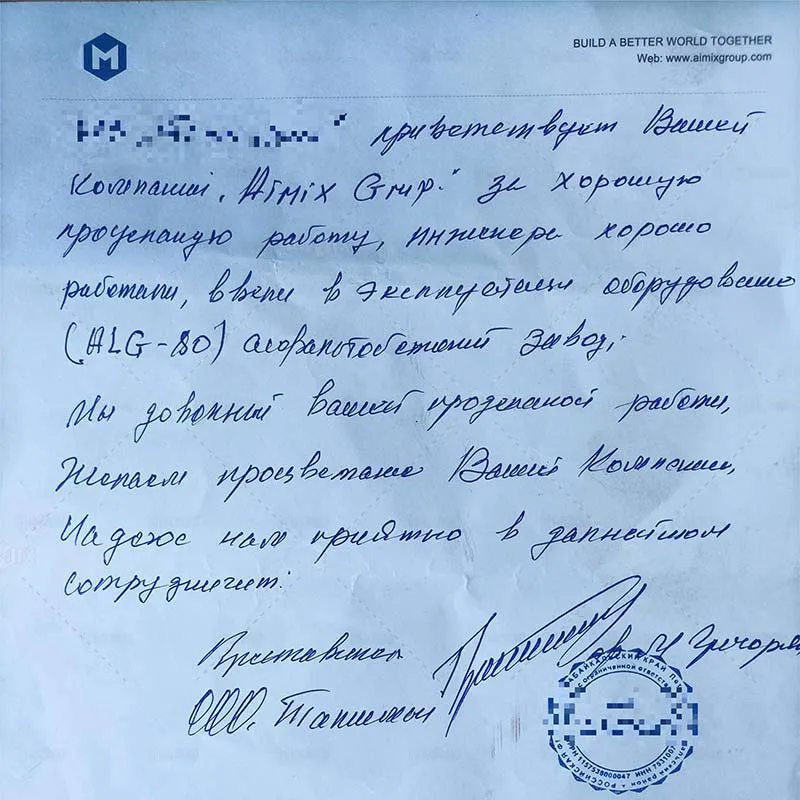 M
BUILD A BETTER WORLD TOGETHER
Web: www.aimixgroup.com
приветствует Вашей
Компаний „Aimix Grup." за хорошую
проделаную работу, инженера хорошо
работали, ввели в эксплустаци оборудование
(ALG-80) асфальтобетоний завод,
Мы довольный вашей проделаной работы,
Желаем процветание Вашей Компании,
Надеюс нам приятно в дальнейшом
сотрудничит.
ООО.
ЗАБАЙКАЛЬСКИЙ КРАЙ
с ограниченной ответств
ОГРН 1157538000047 ИНН 7531007
РОССИЙСКАЯ Ф